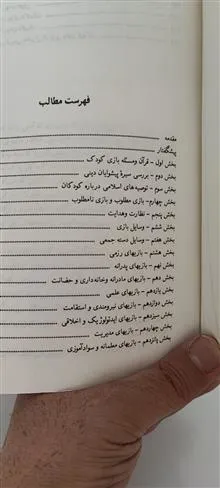 فهرست مطالب
مقدمه
پیشگفتار
بخش اول - قرآن ومسئله بازی کودک
بخش دوم - بررسی سیرهٔ پیشوایان دینی
بخش سوم - توصیه‌های اسلامی درباره کودکان
بخش چهارم - بازی مطلوب و بازی نامطلوب
بخش پنجم - نظارت وهدایت
بخش ششم - وسایل بازی
بخش هفتم - وسایل دسته جمعی
بخش هشتم - بازیهای رزمی
بخش نهم - بازیهای پدرانه
بخش دهم - بازیهای مادرانه وخانه‌داری و حضانت
بخش یازدهم - بازیهای علمی
بخش دوازدهم - بازیهای نیرومندی و استقامت
بخش سیزدهم - بازیهای ایدئولوژیک و اخلاقی
بخش چهاردهم - بازیهای مدیریت
بخش پانزدهم - بازیهای معلمانه و سوادآموزی